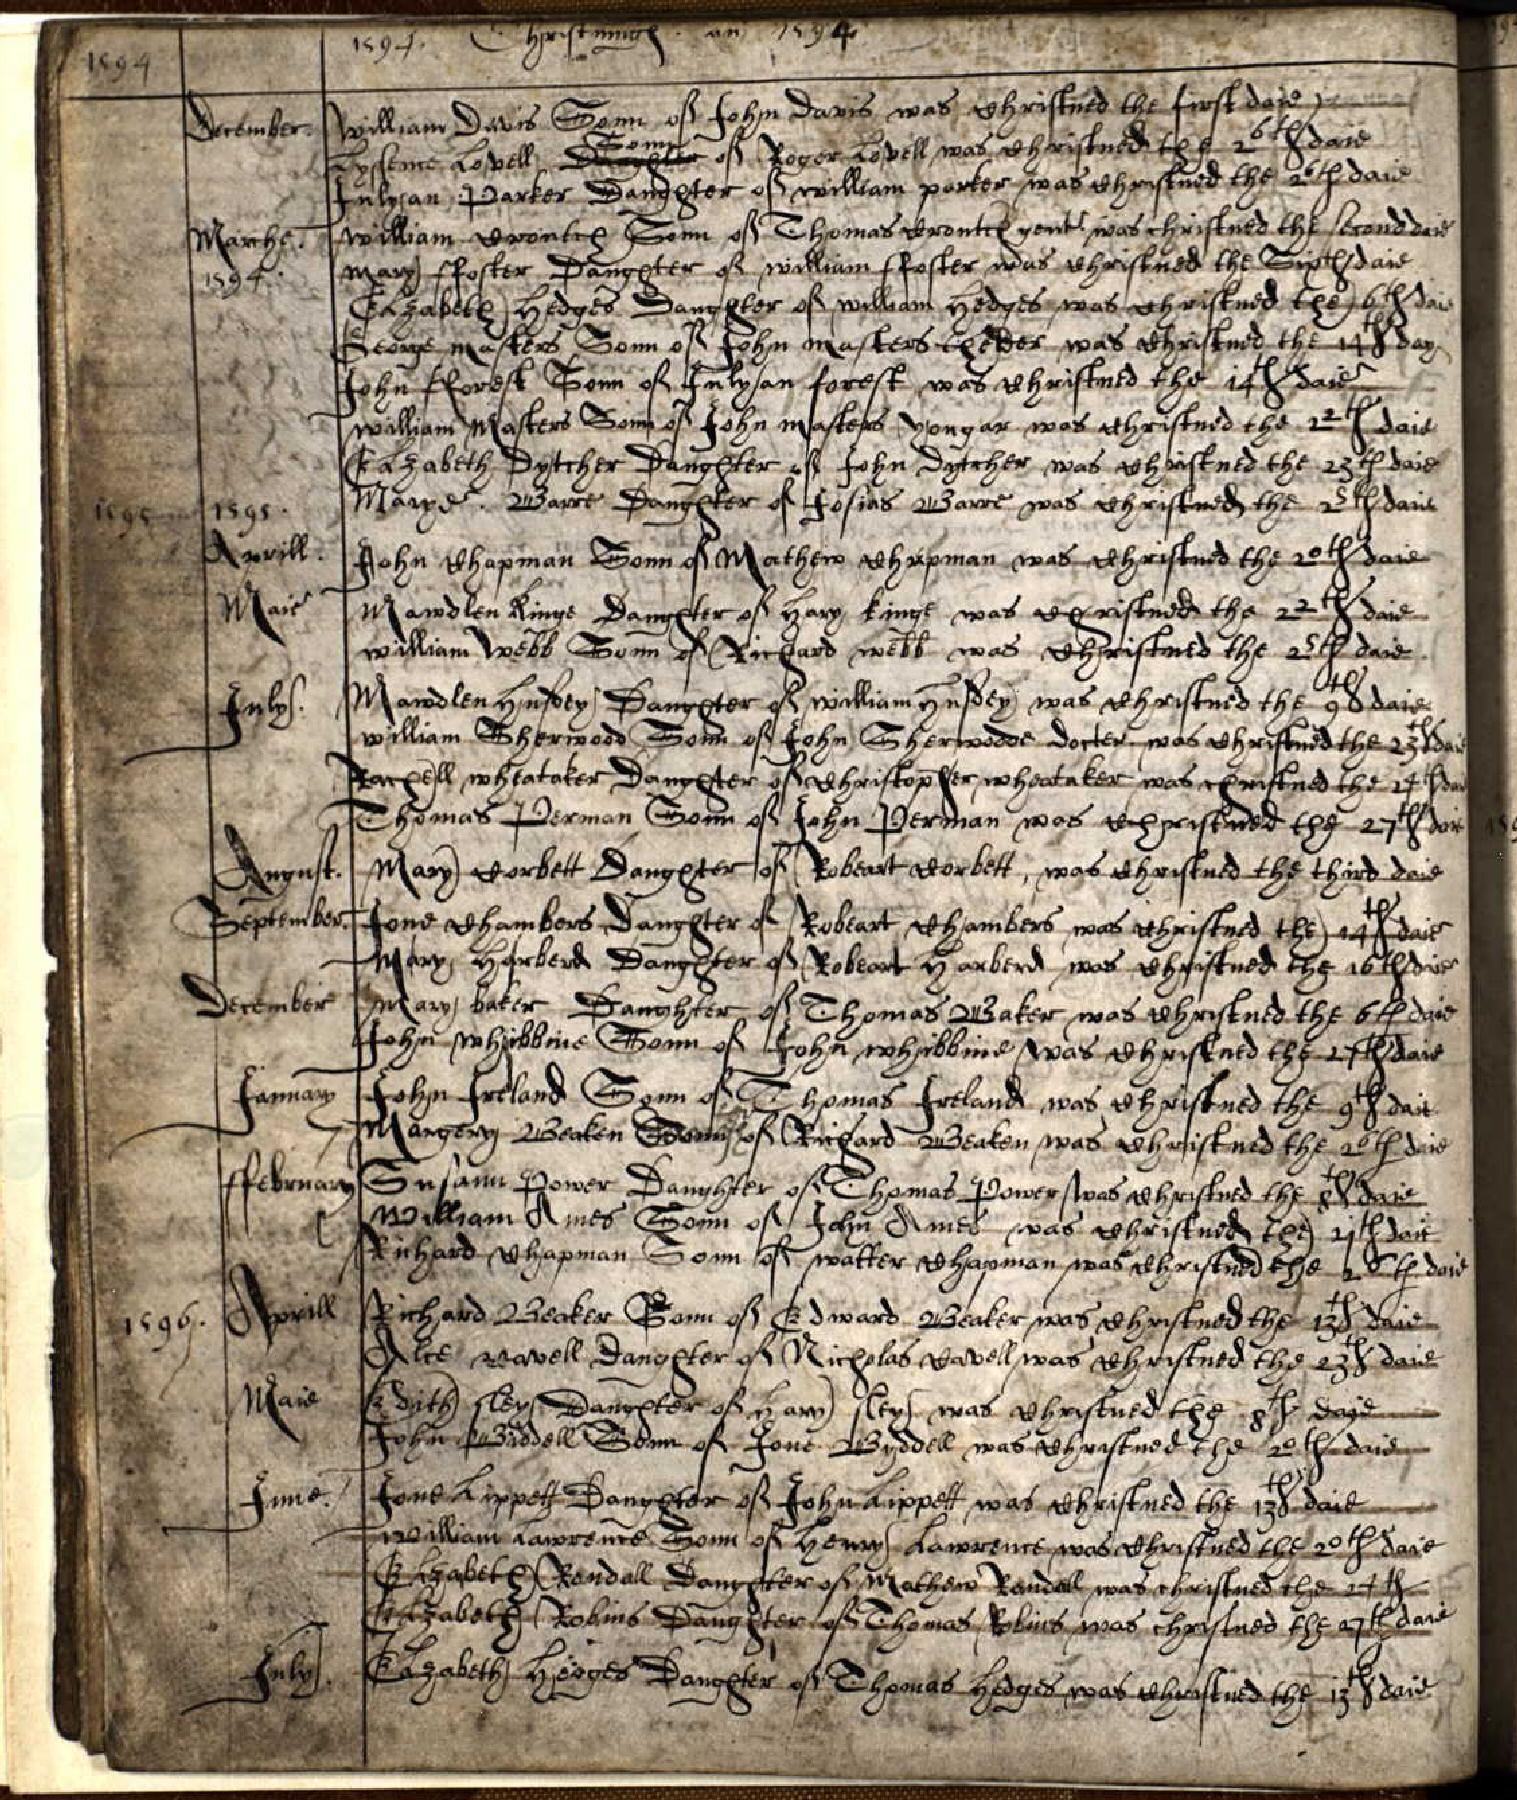 1594
1594. Christnings. an 1594
December. William Davis Sonn of John Davis was Christned the first daie
Lysseme Lovell Daughter Sonn of Roger Lovell was Christned the 26th daie
Julyan Parker Daughter of William parker was Christned the 26th daie
Marche. William Crontch Sonn of Thomas Crontch gent was christned the second daie
1594. Mary ffoster Daughter of william ffoster was Christned the Sixth daie
Elizabeth Hedges Daughter of william Hedges was Christned the 6th daie
George masters Sonn of John masters the elder was Christned the 14th day
John fforest Sonn of Julyan forest was Christned the 14th daie
William Masters Sonn of John masters yongar was Christned the 22th daie
Elizabeth Dytcher Daughter of John Dytcher was Christned the 23th daie
1595 1595. Marye Barre Daughter of Josias Barre was Christned the 25th daie
Aprill. John Chapman Sonn of Mathew Chapman was Christned the 20th daie
Maie Mawdlen Kinge Daughter of Hary kinge was Christned the 22th daie
William Webb Sonn of Richard webb was Christned the 25th daie
July. Mawdlen Daughter of William was Christned the 9th daie
William Sherwood Sonn of John Sherwoode docter was Christned the 23th daie
Rachell wheataker Daughter of Christopher wheataker was christned the 24th daie
Thomas Perman Sonn of John Perman was Christned the 27th daie
August. Mary Corbett Daughter of Robeart Corbett, was Christned the third daie
September. Jone Chambers Daughter of Robeart Chambers was Christned the 14th daie
Mary Harberd Daughter of Robeart Harberd was Christned the 16th daie
December Mary baker Daughter of Thomas Baker was Christned the 6th daie
John whibbine Sonn of John whibbine was Christned the 27th daie
January John Ireland Sonn of Thomas Ireland was Christned the 9th daie
Margery Beaken Sonn of Richard Beaken was Christned the 20th daie
ffebruary Susann Power Daughter of Thomas Power was Christned the 8th daie
William Ames Sonn of John Ames was Christned the 21th daie
Richard Chapman Sonn of walter Chapman was Christned the daie
1596. Aprill Richard Beaker Sonn of Edward Beaker was Christned the 13th daie
Alce Cavell Daughter of Nicholas Cavell was Christned the 23th daie
Maie Edith sley Daughter of Hary sley was Christned the 8th daie
John Biddell Sonn of Jone Byddell was Christned the 20th daie
June. Jone Lippett Daughter of John Lippett was Christned the 13th daie
William Lawrence Sonn of Henry Lawrence was Christned the 20th daie
Elizabeth Rendall Daughter of Mathew Rendall was christned the 24th
Elizabeth Robins Daughter of Thomas Robins was christned the 27th daie
July. Elizabeth Hedges Daughter of Thomas Hedges was Christned the 13th daie